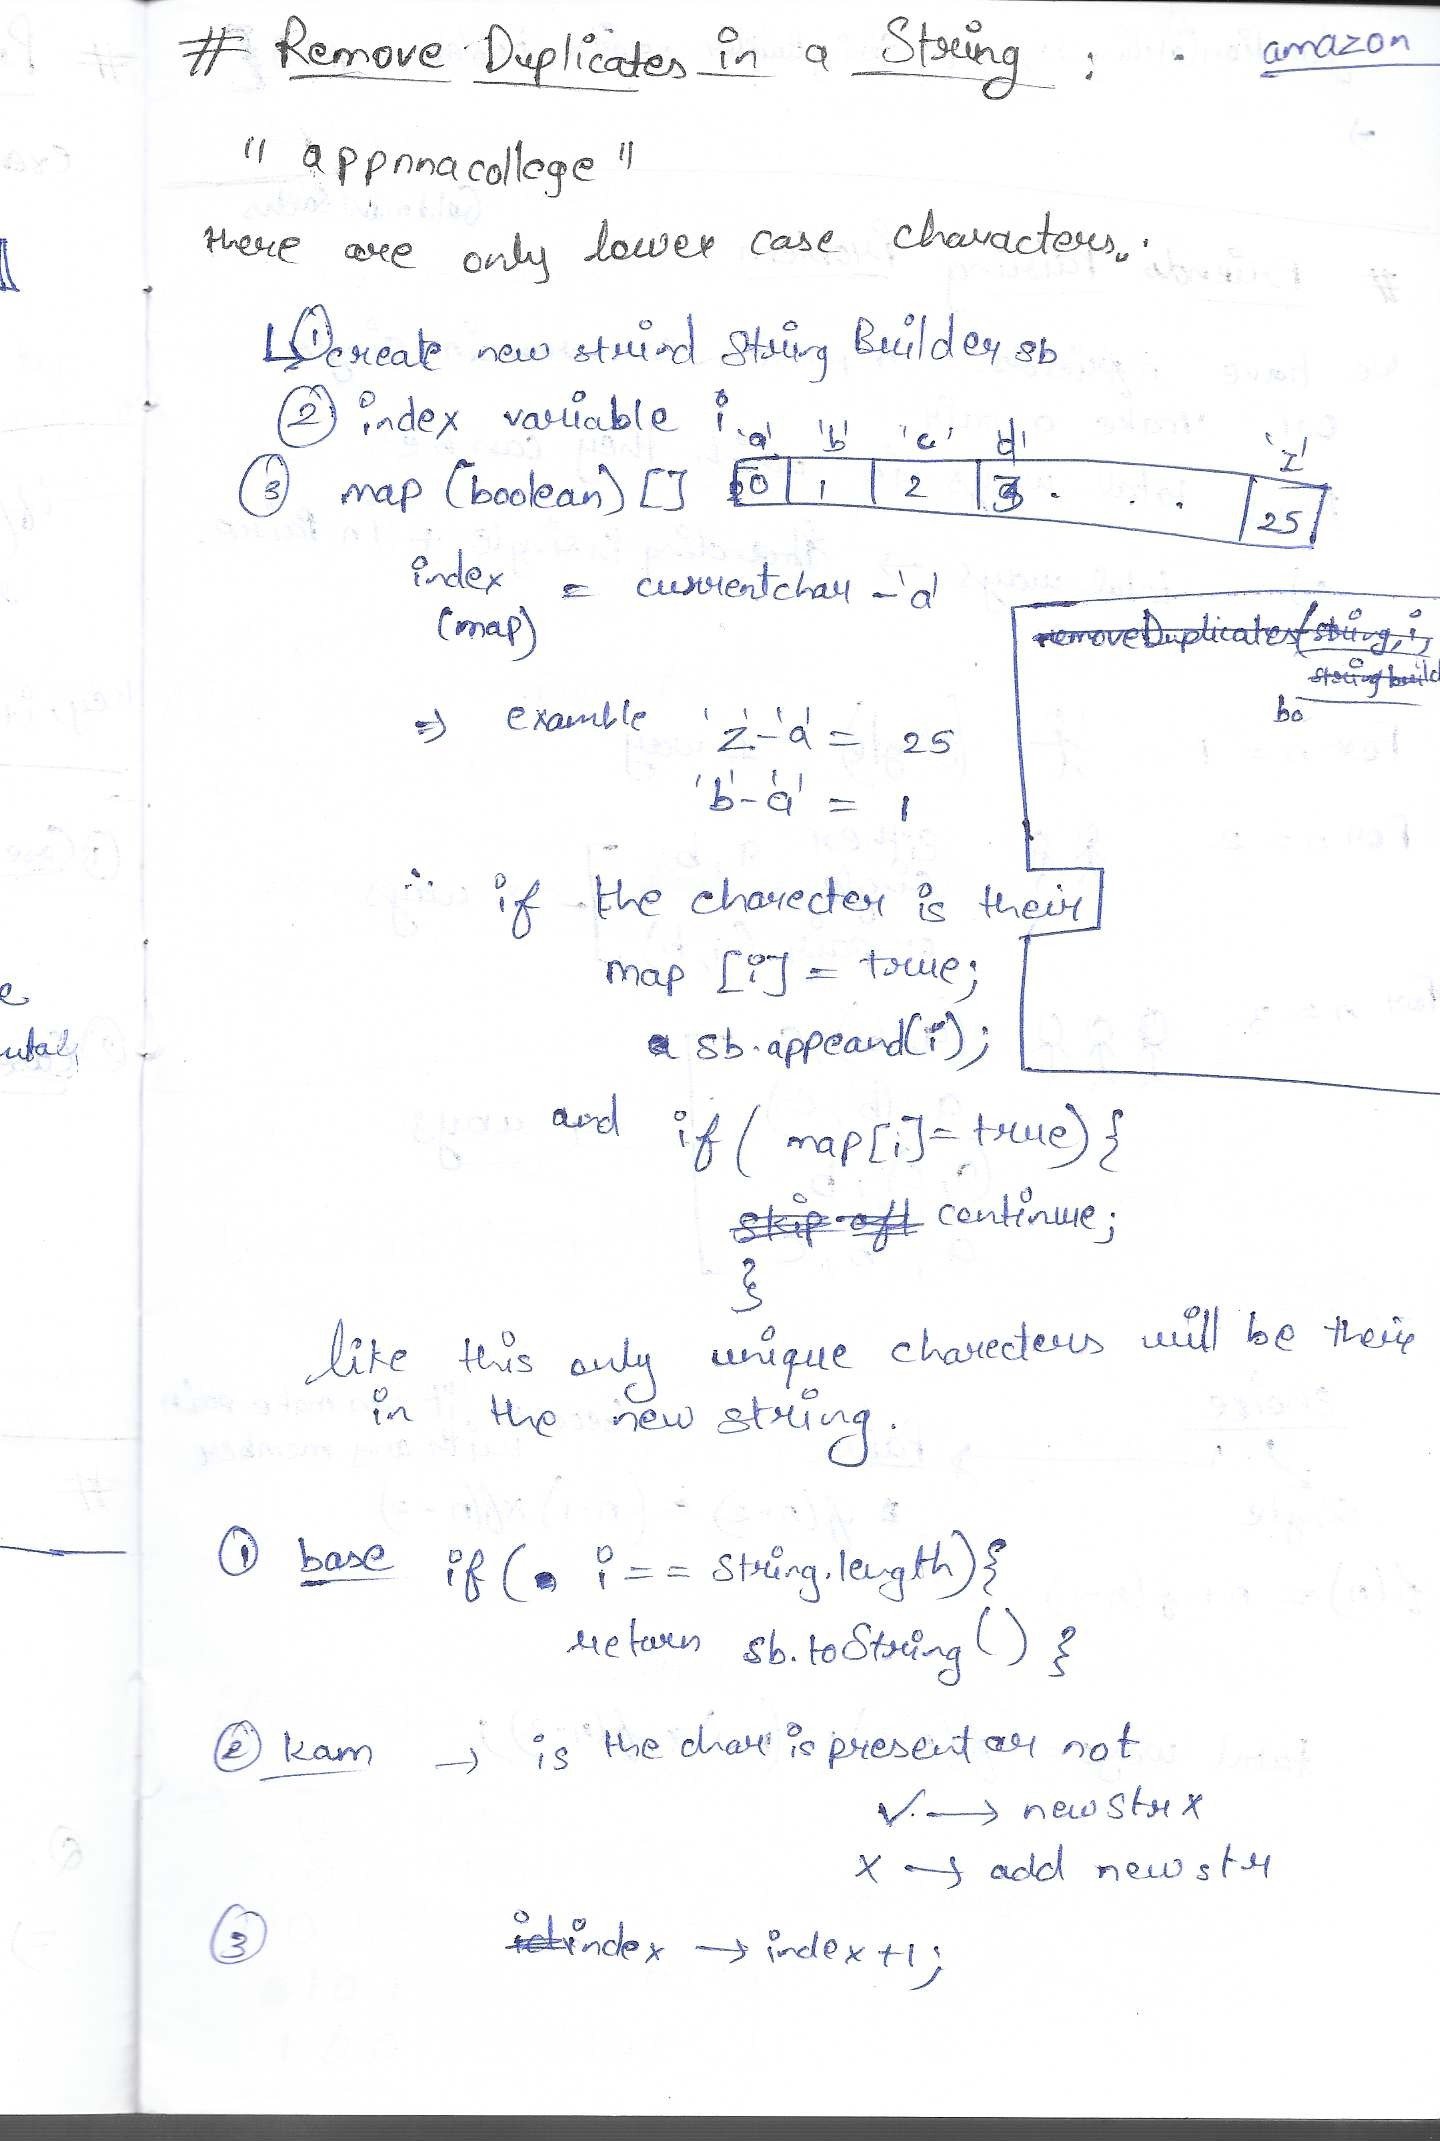 # Remove Duplicates in a String ; . amazon
" appnnacollege "
there are only lower case characters.
↳ ① create new strind String Builder sb
② index variable i
'a' 'b' 'c' 'd' 'z'
③ map (boolean) [] 0 1 2 3 . . . 25
index = currentchar - 'a'
(map)
removeDuplicates(string, i,
string build
bo
⇒ examble 'z'-'a' = 25
'b'-'a' = 1
∴ if the charecter is their
map [i] = true;
sb.appeand(i);
and if ( map[i]= true) {
skip off continue;
}
like this only unique charecters will be their
in the new string.
① base if ( i == String.length){
return sb.toString() }
② kam → is the char is present or not
✓ → newstr x
x → add newstr
③ index → index +1;
e